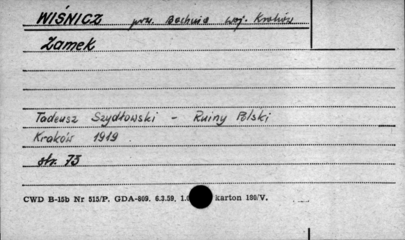 WIŚNICZ pow. Bochnia woj. Kraków
Zamek
Tadeusz Szydłowski - Ruiny Polski
Kraków 1919
str. 73
CWD B-15b Nr 515/P. GDA-809. 6.3.59. karton 180/V.